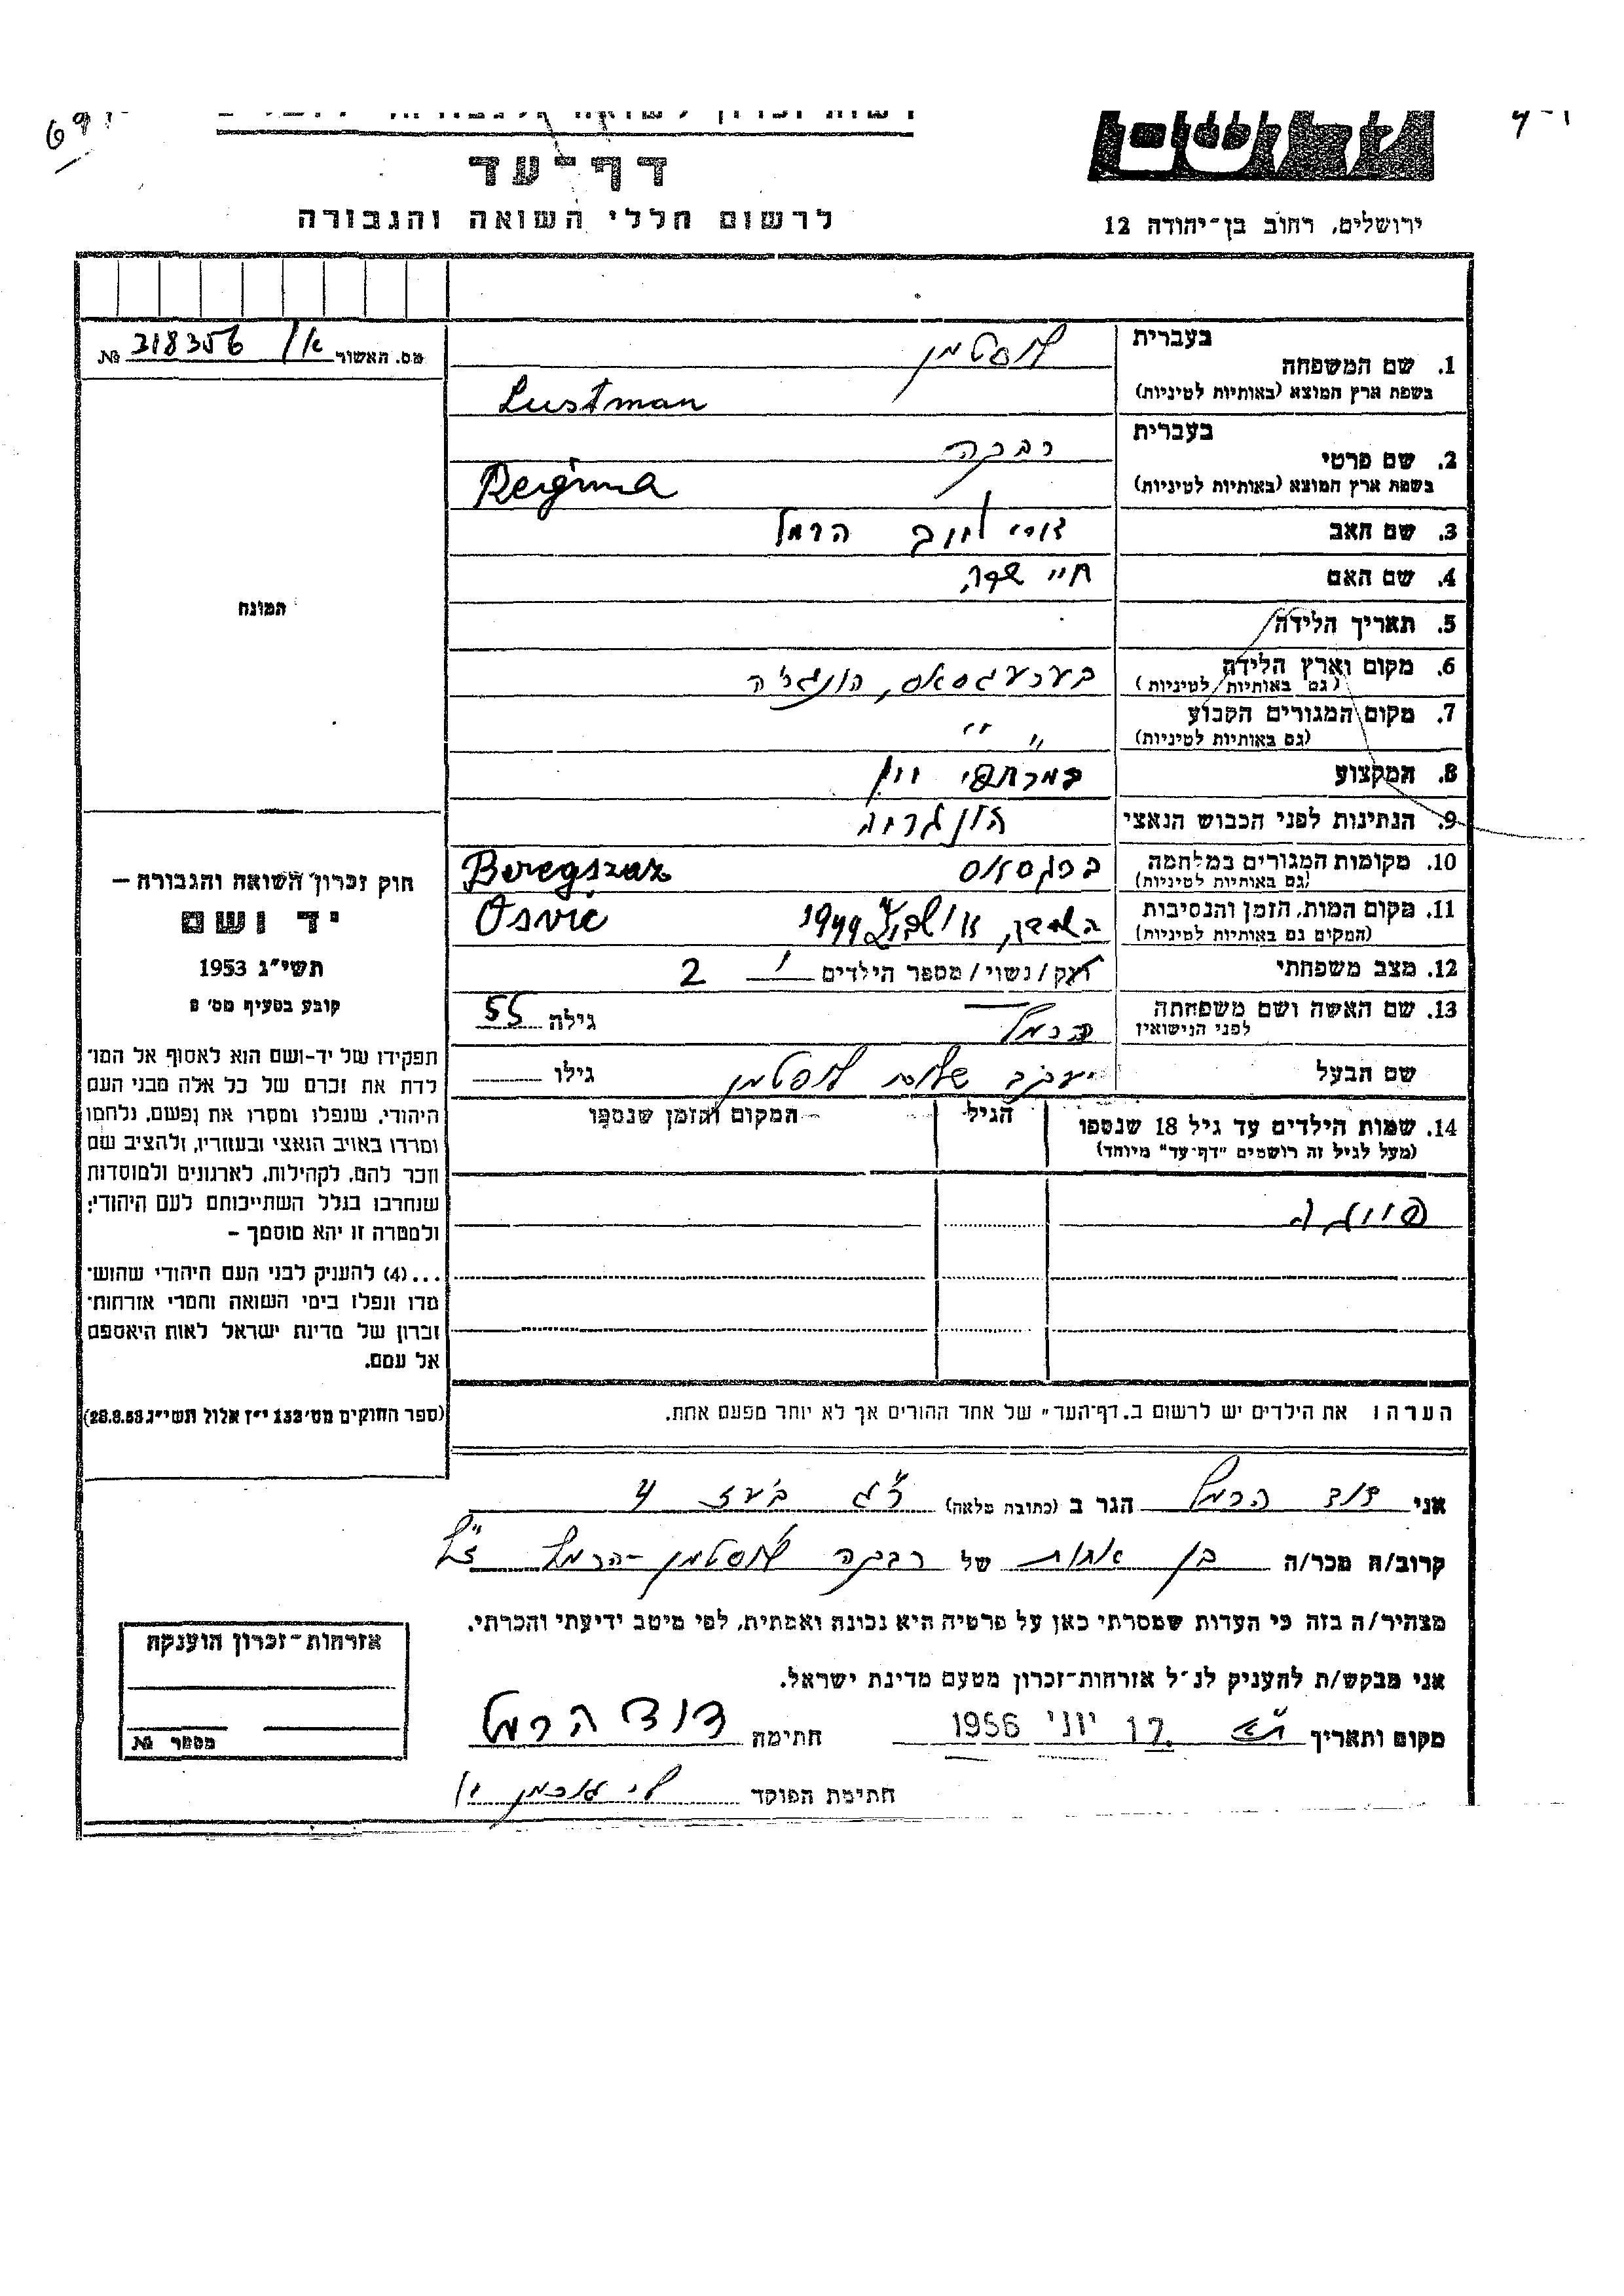 דף-עד
לרשום חללי השואה והגבורה
ירושלים, רחוב בן-יהודה 12
מס. האשור א/ 318356 №
בעברית
1. שם המשפחה לוסטמן
בשפת ארץ המוצא (באותיות לטיניות) Lustman
בעברית
2. שם פרטי רבקה
בשפת ארץ המוצא (באותיות לטיניות) Regina
3. שם האב הרמל
4. שם האם
5. תאריך הלידה
6. מקום וארץ הלידה
(גם באותיות לטיניות)
7. מקום המגורים הקבוע " "
(גם באותיות לטיניות)
8. המקצוע
9. הנתינות לפני הכבוש הנאצי הונגרית
10. מקומות המגורים במלחמה ברגסאס Beregszasz
(גם באותיות לטיניות)
11. מקום המות, הזמן והנסיבות אושביץ 1944 Osvic
(המקום גם באותיות לטיניות)
12. מצב משפחתי רוק/נשוי/מספר הילדים 2
13. שם האשה ושם משפחתה הרמל גילה 55
לפני הנישואין
שם הבעל יעקב שלום לוסטמן גילו
14. שמות הילדים עד גיל 18 שנספו הגיל המקום והזמן שנספו
(מעל לגיל זה רושמים "דף-עד" מיוחד)
הערה: את הילדים יש לרשום ב"דף-העד" של אחד ההורים אך לא יותר מפעם אחת.
המונח
חוק זכרון השואה והגבורה —
יד ושם
תשי"ג 1953
קובע בסעיף מס' 2
תפקידו של יד-ושם הוא לאסוף אל המו־
לדת את זכרם של כל אלה מבני העם
היהודי, שנפלו ומסרו את נפשם, נלחמו
ומרדו באויב הנאצי ובעוזריו, ולהציב שם
וזכר להם, לקהילות, לארגונים ולמוסדות
שנחרבו בגלל השתייכותם לעם היהודי;
ולמטרה זו יהא מוסמך –
...(4) להעניק לבני העם היהודי שהוש־
מדו ונפלו בימי השואה והמרי אזרחות־
זכרון של מדינת ישראל לאות היאספם
אל עמם.
(ספר החוקים מס' 132 י"ז אלול תשי"ג 28.8.53)
אני דוד הרמל הגר ב (כתובת מלאה) בועז 4
קרוב/ה מכר/ה בן אחות של רבקה לוסטמן-הרמל ז"ל
מצהיר/ה בזה כי העדות שמסרתי כאן על פרטיה היא נכונה ואמתית, לפי מיטב ידיעתי והכרתי.
אני מבקש/ת להעניק לנ"ל אזרחות-זכרון מטעם מדינת ישראל.
מקום ותאריך ת"א 17. יוני 1956 חתימה דוד הרמל
חתימת הפוקד
אזרחות-זכרון הוענקה
מספר №